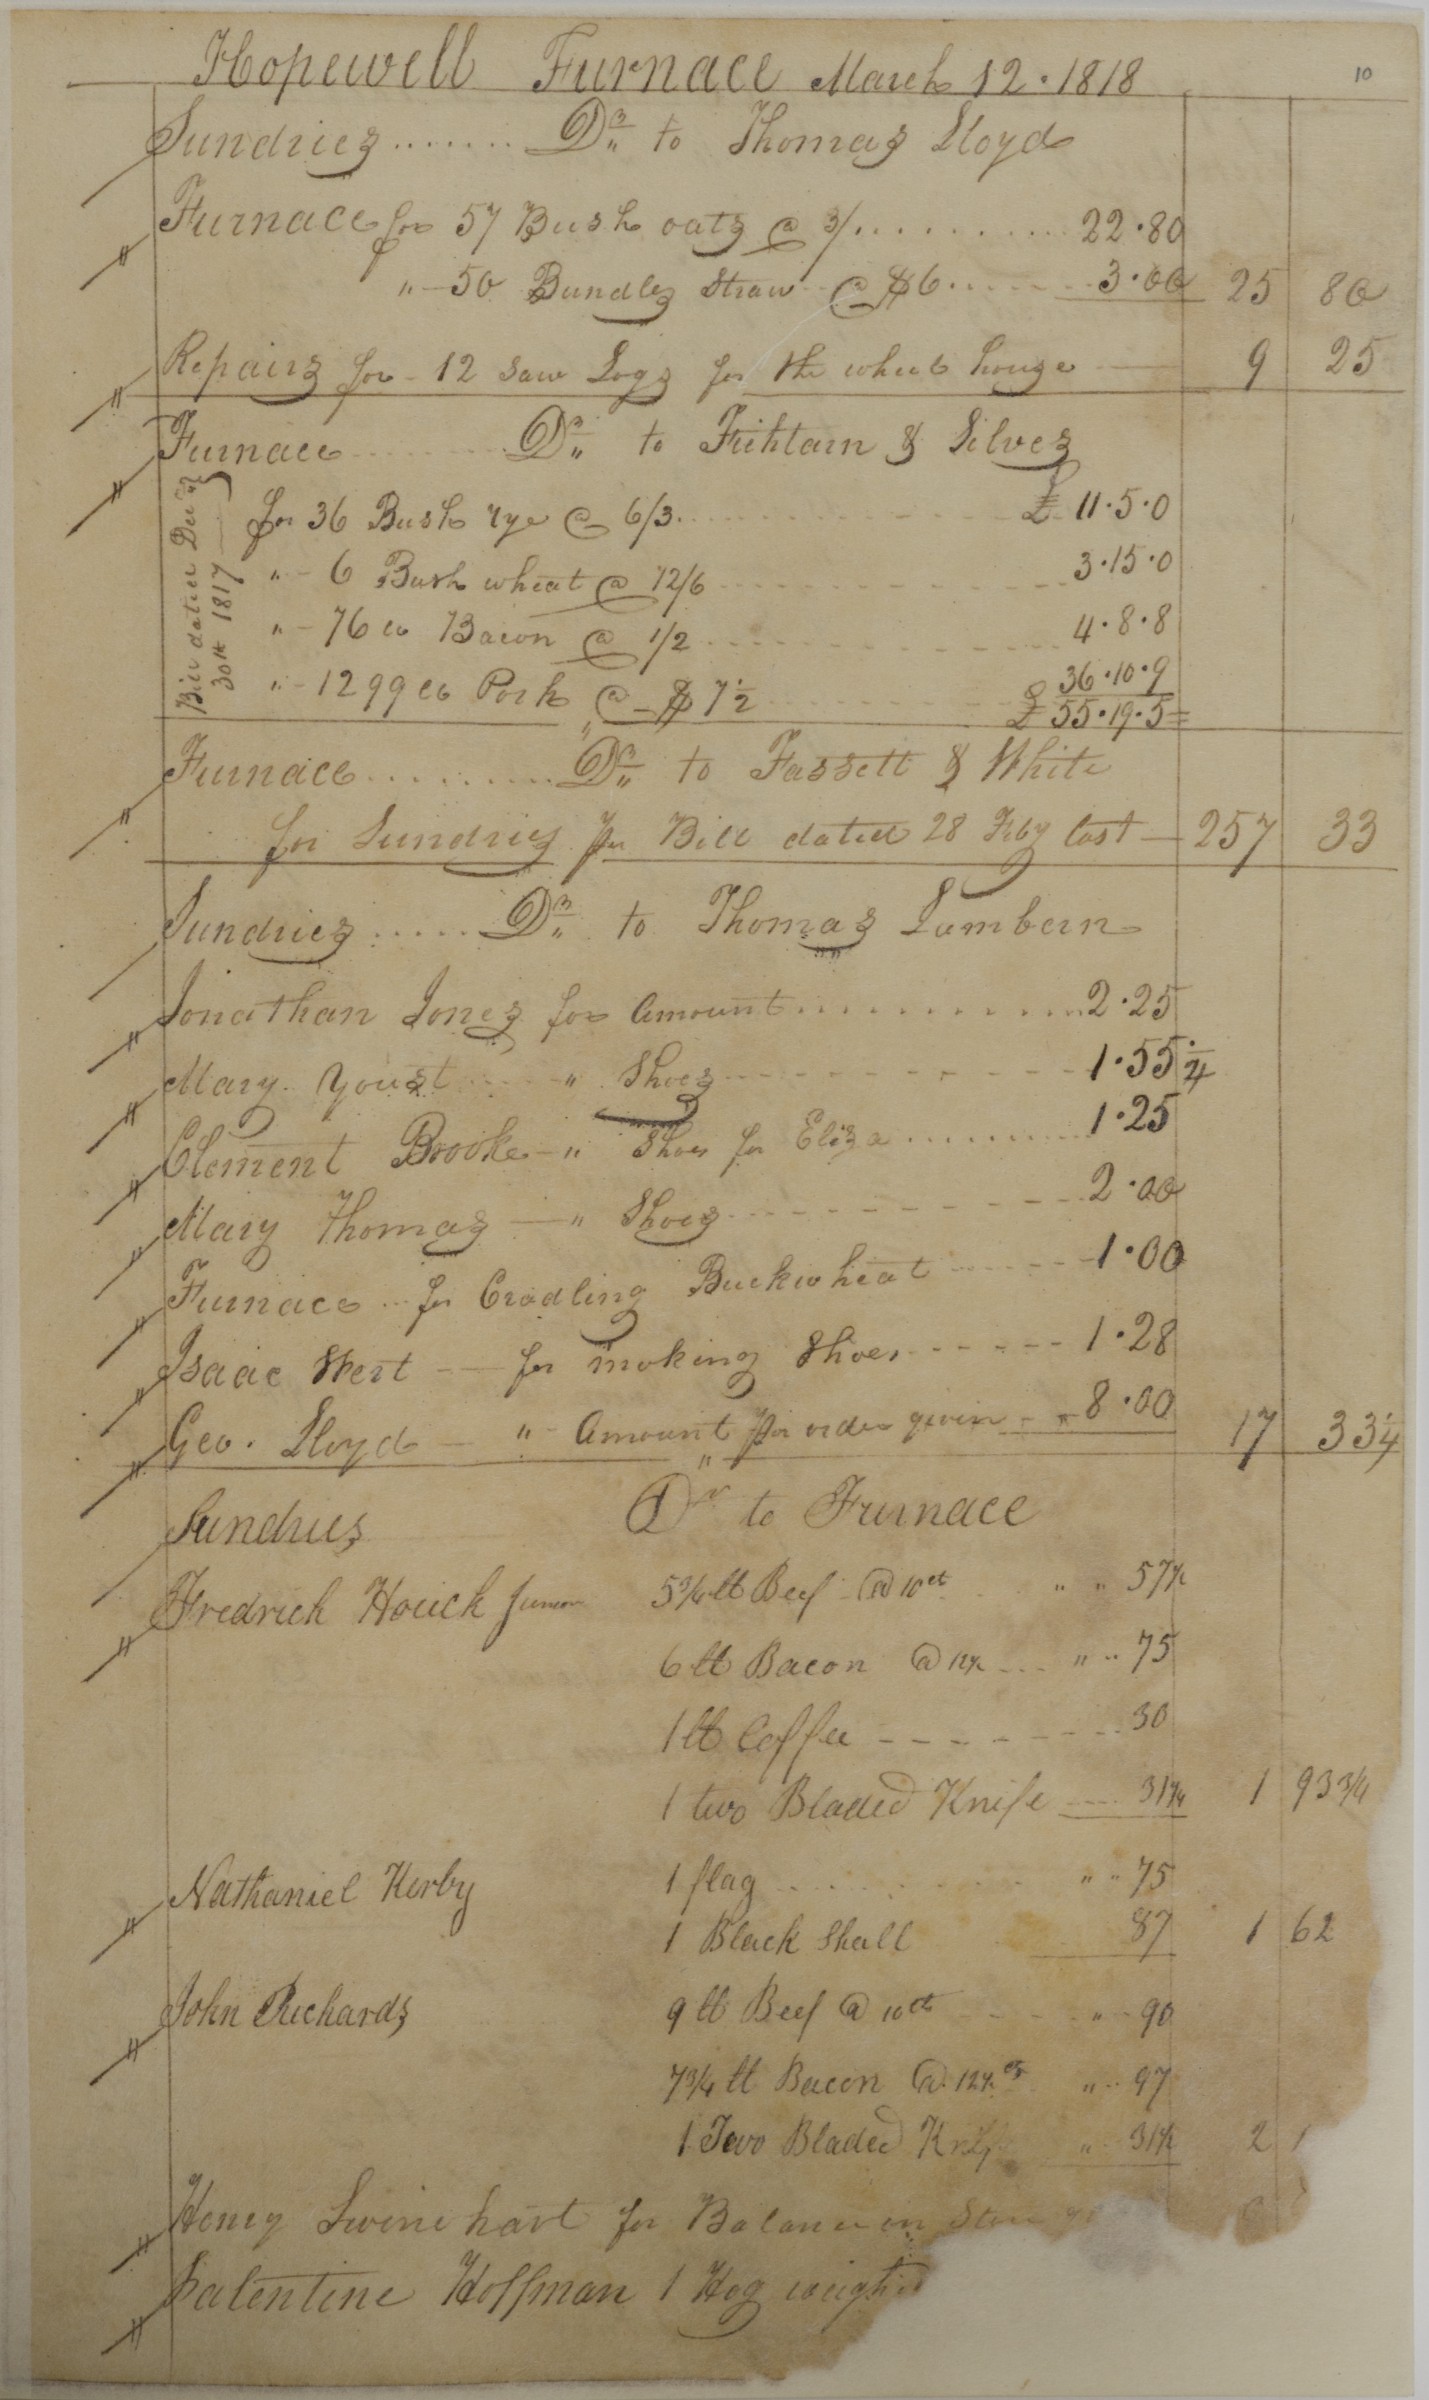 10
Hopewell Furnace March 12 · 1818
Sundries ....... Dr to Thomas Lloyd
Furnace for 57 Bush oats @ 3/ .......... 22·80
" 50 Bundles Straw @ $6 ....... 3·00 25 80
Repairs for 12 Saw Logs for the wheel house 9 25
Furnace ........ Dr to Fichtarn & Silvez
Bill dated Decr 30th 1817
for 36 Bush rye @ 6/3 ........ £ 11·5·0
" 6 Bush wheat @ 12/6 ........ 3·15·0
" 76 lb Bacon @ 1/2 ........ 4·8·8
" 1299 lb Pork @ $ 7½ ........ 36·10·9
£ 55·19·5
Furnace ......... Dr to Fassett & White
for Sundries pr Bill dated 28 Feby last 257 33
Sundries ..... Dr to Thomas Lambern
Jonathan Jones for Amount ........... 2·25
Mary Youst " Shoes 1·55¼
Clement Brooke " Shoes for Eliza ........ 1·25
Mary Thomas " Shoes 2·00
Furnace for Cradling Buckwheat 1·00
Isaac Wert for making Shoes 1·28
Geo. Lloyd " Amount pr order given 8·00 17 33¼
Sundries Dr to Furnace
Fredrick Houck Junior 5¾ lb Beef @ 10ct " " 57½
6 lb Bacon @ 12½ " " 75
1 lb Coffee 30
1 two Bladed Knife 31¼ 1 93¾
Nathaniel Kerby 1 flag " " 75
1 Black Shall 87 1 62
John Richards 9 lb Beef @ 10cts " 90
7¾ lb Bacon @ 12½ cts " 97
1 Two Bladed Knife " 31¼ 2 1
Henry Swinehart for Balance in Store
Valentine Hoffman 1 Hog weighed